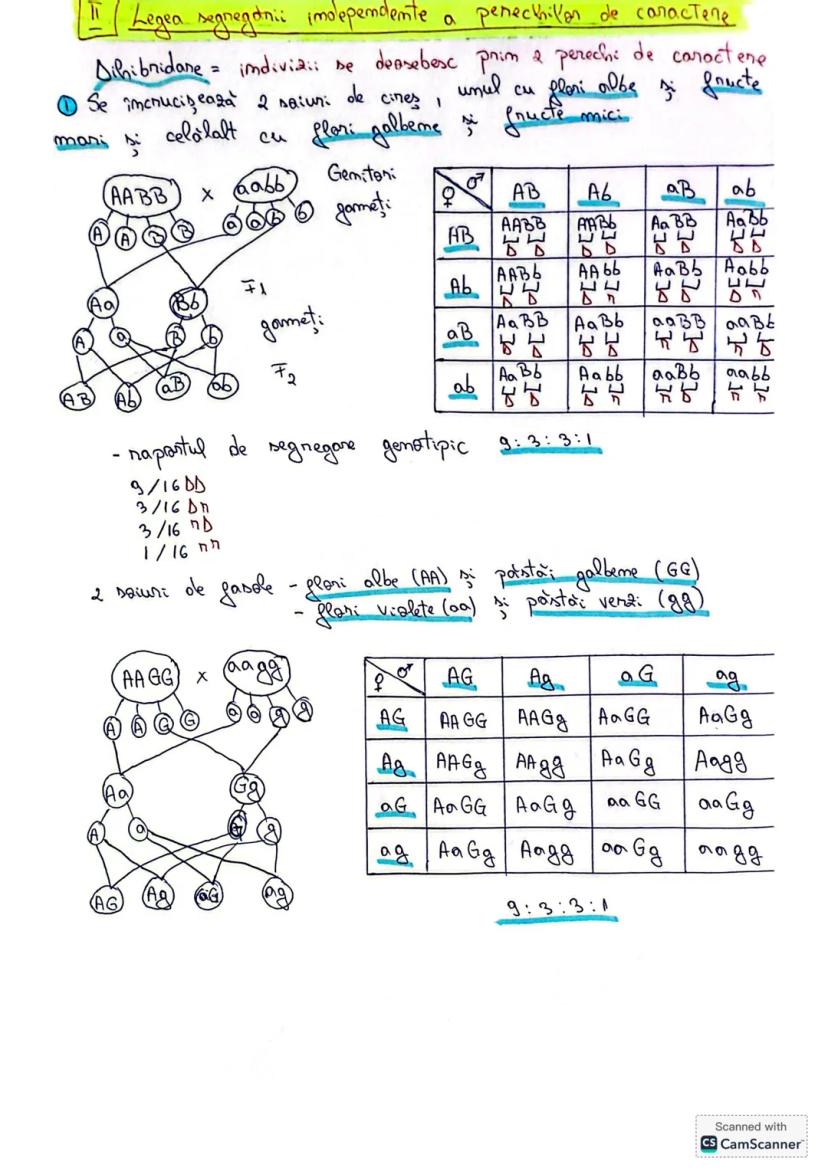 II Legea segregării independente a perechilor de caractere
Dihibridare = indivizii se deosebesc prin 2 perechi de caractere
① Se încrucișează 2 soiuri de cireș, unul cu flori albe și fructe
mari și celălalt cu flori galbene și fructe mici.
AABB x aabb Genitori
A A B B a a b b gameți
Aa Bb F1
A a B b gameți
AB Ab aB ab F2
♀ ♂ AB Ab aB ab
AB AABB AABb AaBB AaBb
D D D D D D D D
Ab AABb AAbb AaBb Aabb
D D D r D D D r
aB AaBB AaBb aaBB aaBb
D D D D r D r D
ab AaBb Aabb aaBb aabb
D D D r r D r r
- raportul de segregare genotipic 9:3:3:1
9/16 DD
3/16 Dr
3/16 rD
1/16 rr
2 soiuri de fasole - flori albe (AA) și păstăi galbene (GG)
- flori violete (aa) și păstăi verzi (gg)
AAGG x aagg
A A G G a a g g
Aa Gg
A a G g
AG Ag aG ag
♀ ♂ AG Ag aG ag
AG AAGG AAGg AaGG AaGg
Ag AAGg AAgg AaGg Aagg
aG AaGG AaGg aaGG aaGg
ag AaGg Aagg aaGg aagg
9:3:3:1
Scanned with
CS CamScanner